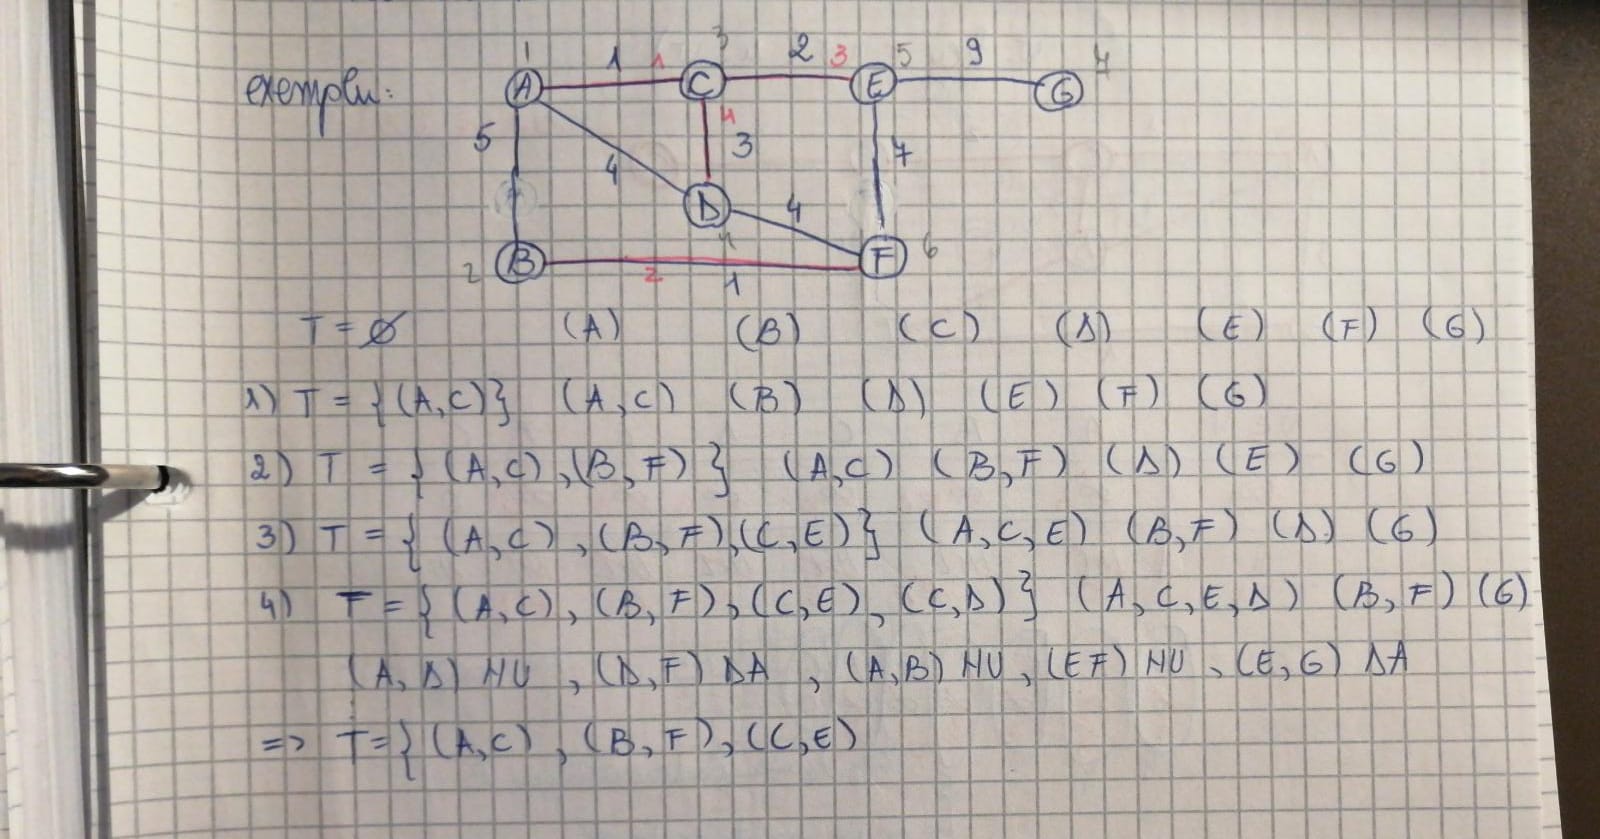 exemplu:
1 3 5 7
A 1 1 C 2 3 E 9 G
5 4 4 3 7
D 4
4
2 B 2 1 F 6
T = ∅ (A) (B) (C) (D) (E) (F) (G)
1) T = {(A,C)} (A,C) (B) (D) (E) (F) (G)
2) T = { (A,C) ,(B,F) } (A,C) (B,F) (D) (E) (G)
3) T = { (A,C) , (B,F),(C,E)} (A,C,E) (B,F) (D) (G)
4) T = { (A,C), (B,F), (C,E), (C,D)} (A,C,E,D) (B,F) (G)
(A,D) NU , (D,F) DA , (A,B) NU, (EF) NU , (E,G) DA
=> T={(A,C) , (B,F), (C,E)